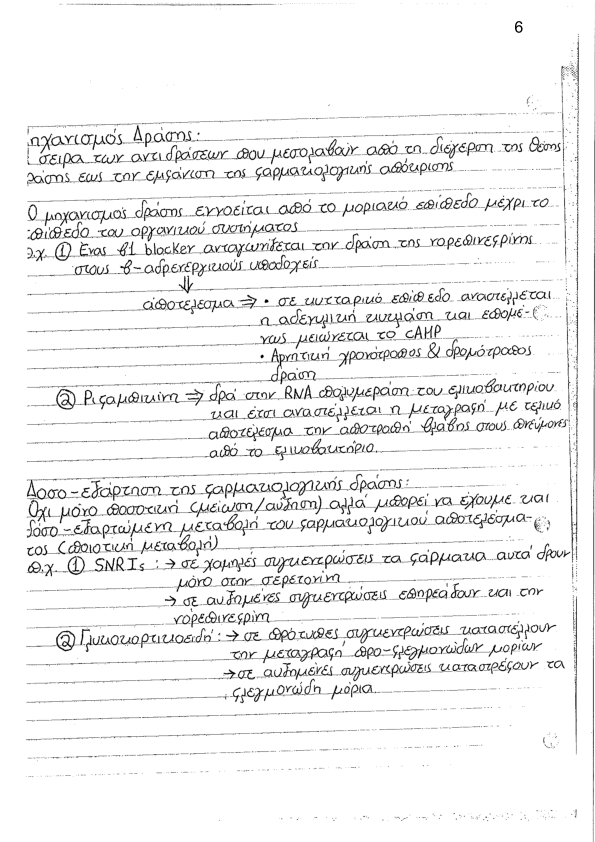 6
ηχανισμός Δράσης:
σειρα των αντιδράσεων που μεσολαβούν από τη διέγερση της θέσης
ράσης εως την εμφάνιση της φαρμακολογικής απόκρισης
Ο μηχανισμός δράσης εννοείται από το μοριακό επίπεδο μέχρι το
πίπεδο του οργανικού συστήματος
π.χ. ① Ένας β1 blocker ανταγωνίζεται την δράση της νορεπινεφρίνης
στους β-αδρενεργικούς υποδοχείς
⇓
αποτέλεσμα ⇒ • σε κυτταρικό επίπεδο αναστέλλεται
η αδενυλική κυκλάση και επομέ-
νως μειώνεται το cAMP
• Αρνητική χρονότροπος & δρομότροπος
δράση
② Ριφαμπικίνη ⇒ δρά στην RNA πολυμεράση του ελικοβακτηρίου
και έτσι αναστέλλεται η μεταγραφή με τελικό
αποτέλεσμα την αποτροπή βλάβης στους πνεύμονες
από το ελικοβακτήριο.
Δοσο-εξάρτηση της φαρμακολογικής δράσης:
Όχι μόνο ποσοτική (μείωση/αύξηση) αλλά μπορεί να έχουμε και
δόσο-εξαρτώμενη μεταβολή του φαρμακολογικού αποτελέσμα-
τος (ποιοτική μεταβολή)
π.χ. ① SNRIs : → σε χαμηλές συγκεντρώσεις τα φάρμακα αυτά δρουν
μόνο στην σεροτονίνη
→ σε αυξημένες συγκεντρώσεις επηρεάζουν και την
νορεπινεφρίνη
② Γλυκοκορτικοειδή : → σε πρότυπες συγκεντρώσεις καταστέλλουν
την μεταγραφή προ-φλεγμονωδών μορίων
→ σε αυξημένες συγκεντρώσεις καταστρέφουν τα
φλεγμονώδη μόρια.